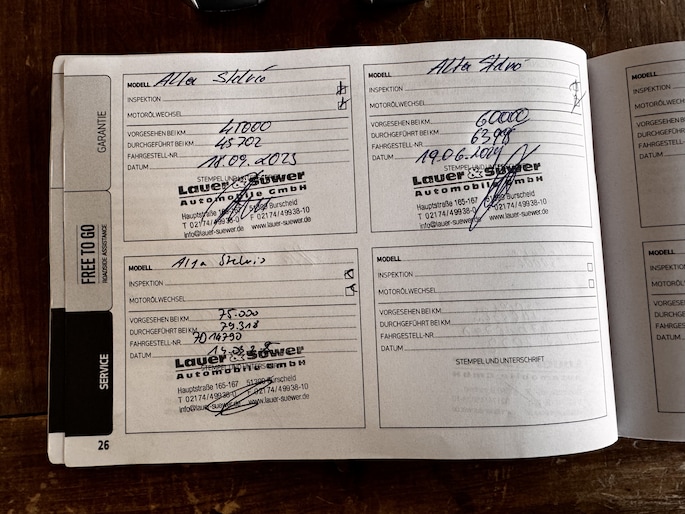 GARANTIE
FREE TO GO
ROADSIDE ASSISTANCE
SERVICE
26
MODELL Alfa Stelvio
INSPEKTION
MOTORÖLWECHSEL
VORGESEHEN BEI KM 45000
DURCHGEFÜHRT BEI KM 45702
FAHRGESTELL-NR.
DATUM 18.09.2023
STEMPEL UND
Lauer & Süwer
Automobile GmbH
Hauptstraße 165-167 51399 Burscheid
T 02174/49938-0 F 02174/49938-10
info@lauer-suewer.de www.lauer-suewer.de
Alfa Stelvio
MODELL
INSPEKTION
MOTORÖLWECHSEL
VORGESEHEN BEI KM 60000
DURCHGEFÜHRT BEI KM
FAHRGESTELL-NR.
DATUM 19.06.2024
STEMPEL UND
Lauer & Süwer
Automobile GmbH
Hauptstraße 165-167 Burscheid
T 02174/49938-0 F 02174/49938-10
info@lauer-suewer.de www.lauer-suewer.de
MODELL Alfa Stelvio
INSPEKTION
MOTORÖLWECHSEL
VORGESEHEN BEI KM 75.000
DURCHGEFÜHRT BEI KM 79.318
FAHRGESTELL-NR.
DATUM
Lauer & Süwer
Automobile GmbH
Hauptstraße 165-167 51399 Burscheid
T 02174/49938-0 F 02174/49938-10
info@lauer-suewer.de www.lauer-suewer.de
MODELL
INSPEKTION
MOTORÖLWECHSEL
VORGESEHEN BEI KM
DURCHGEFÜHRT BEI KM
FAHRGESTELL-NR.
DATUM
STEMPEL UND UNTERSCHRIFT
MODELL
INSPEKTION
MOTORÖLWE
VORGESEHEN
DURCHGEFÜH
FAHRGESTELL
DATUM
MODELL
INSPEKTION
MOTORÖLW
VORGESEH
DURCHGEF
FAHRGEST
DATUM